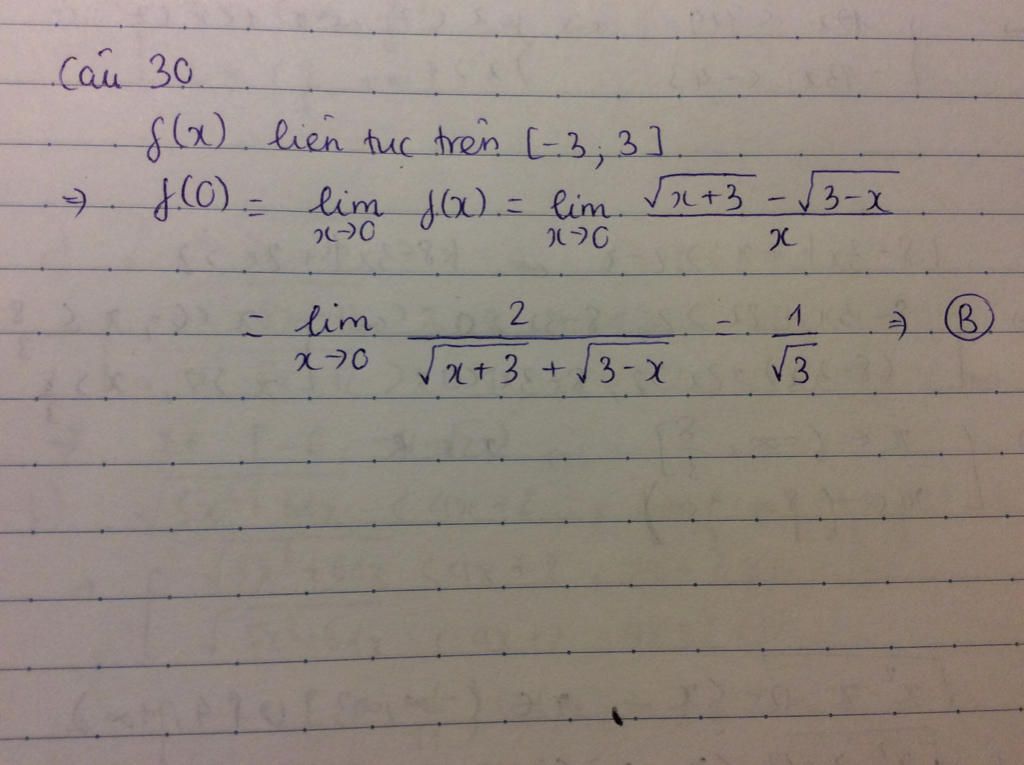 Câu 30
f(x) liên tục trên [-3; 3]
=> f(0) = lim x→0 f(x) = lim x→0 (√(x+3) - √(3-x))/x
= lim x→0 2/(√(x+3) + √(3-x)) = 1/√3 => B